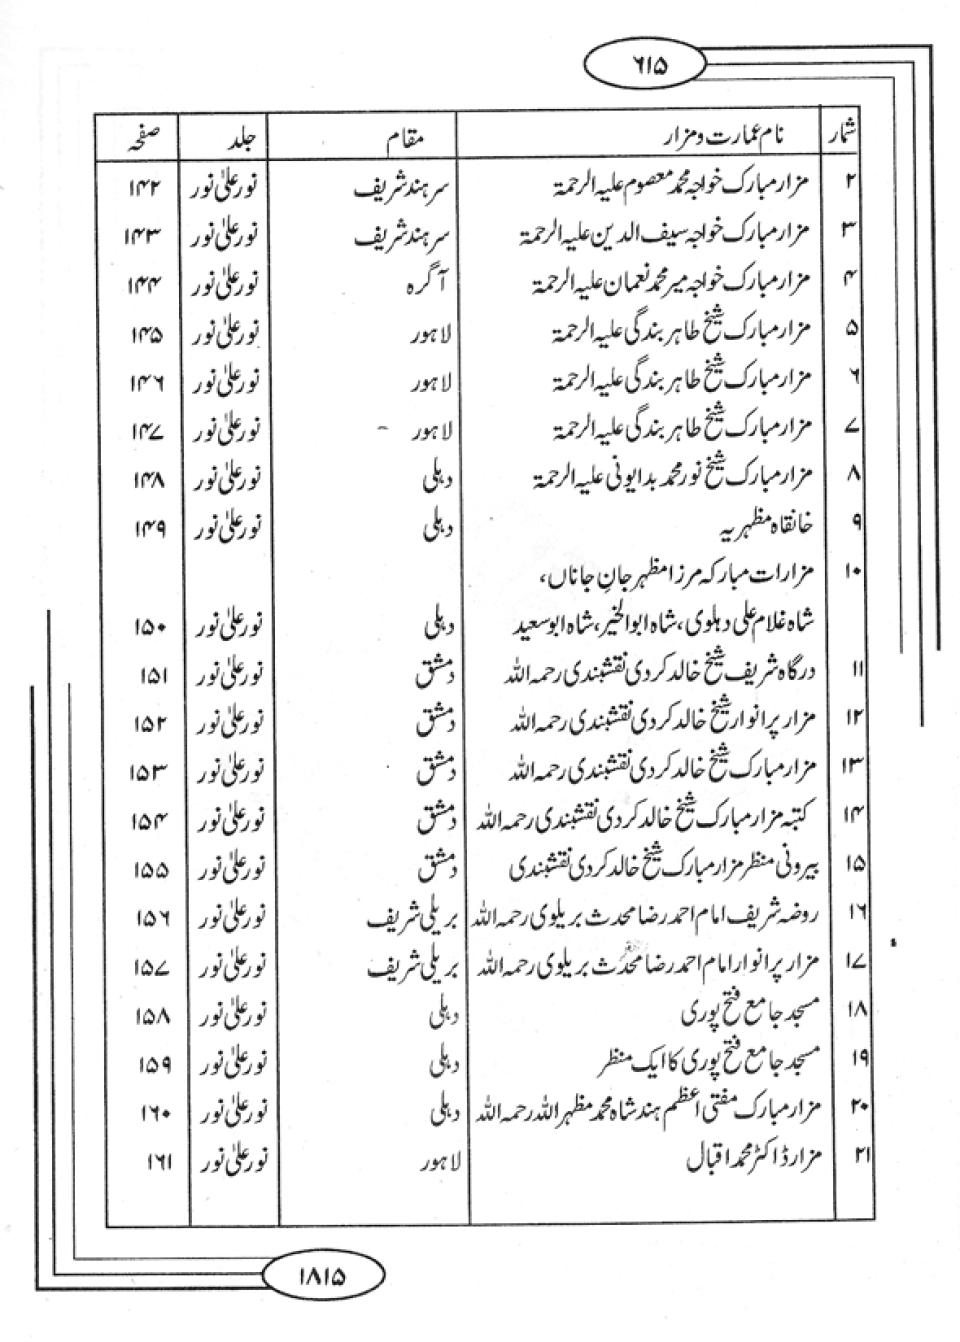 ۶۱۵
شمار نام عمارت و مزار مقام جلد صفحہ
۲ مزار مبارک خواجہ محمد معصوم علیہ الرحمۃ سرہند شریف نور علیٰ نور ۱۴۲
۳ مزار مبارک خواجہ سیف الدین علیہ الرحمۃ سرہند شریف نور علیٰ نور ۱۴۳
۴ مزار مبارک خواجہ میر محمد نعمان علیہ الرحمۃ آگرہ نور علیٰ نور ۱۴۴
۵ مزار مبارک شیخ طاہر بندگی علیہ الرحمۃ لاہور نور علیٰ نور ۱۴۵
۶ مزار مبارک شیخ طاہر بندگی علیہ الرحمۃ لاہور نور علیٰ نور ۱۴۶
۷ مزار مبارک شیخ طاہر بندگی علیہ الرحمۃ لاہور نور علیٰ نور ۱۴۷
۸ مزار مبارک شیخ نور محمد بدایونی علیہ الرحمۃ دہلی نور علیٰ نور ۱۴۸
۹ خانقاہ مظہریہ دہلی نور علیٰ نور ۱۴۹
۱۰ مزارات مبارکہ مرزا مظہر جانِ جاناں،
شاہ غلام علی دہلوی، شاہ ابوالخیر، شاہ ابوسعید دہلی نور علیٰ نور ۱۵۰
۱۱ درگاہ شریف شیخ خالد کردی نقشبندی رحمہ اللہ دمشق نور علیٰ نور ۱۵۱
۱۲ مزار پرانوار شیخ خالد کردی نقشبندی رحمہ اللہ دمشق نور علیٰ نور ۱۵۲
۱۳ مزار مبارک شیخ خالد کردی نقشبندی رحمہ اللہ دمشق نور علیٰ نور ۱۵۳
۱۴ کتبہ مزار مبارک شیخ خالد کردی نقشبندی رحمہ اللہ دمشق نور علیٰ نور ۱۵۴
۱۵ بیرونی منظر مزار مبارک شیخ خالد کردی نقشبندی دمشق نور علیٰ نور ۱۵۵
۱۶ روضہ شریف امام احمد رضا محدث بریلوی رحمہ اللہ بریلی شریف نور علیٰ نور ۱۵۶
۱۷ مزار پرانوار امام احمد رضا محدث بریلوی رحمہ اللہ بریلی شریف نور علیٰ نور ۱۵۷
۱۸ مسجد جامع فتح پوری دہلی نور علیٰ نور ۱۵۸
۱۹ مسجد جامع فتح پوری کا ایک منظر دہلی نور علیٰ نور ۱۵۹
۲۰ مزار مبارک مفتی اعظم ہند شاہ محمد مظہر اللہ رحمہ اللہ دہلی نور علیٰ نور ۱۶۰
۲۱ مزار ڈاکٹر محمد اقبال لاہور نور علیٰ نور ۱۶۱
۱۸۱۵